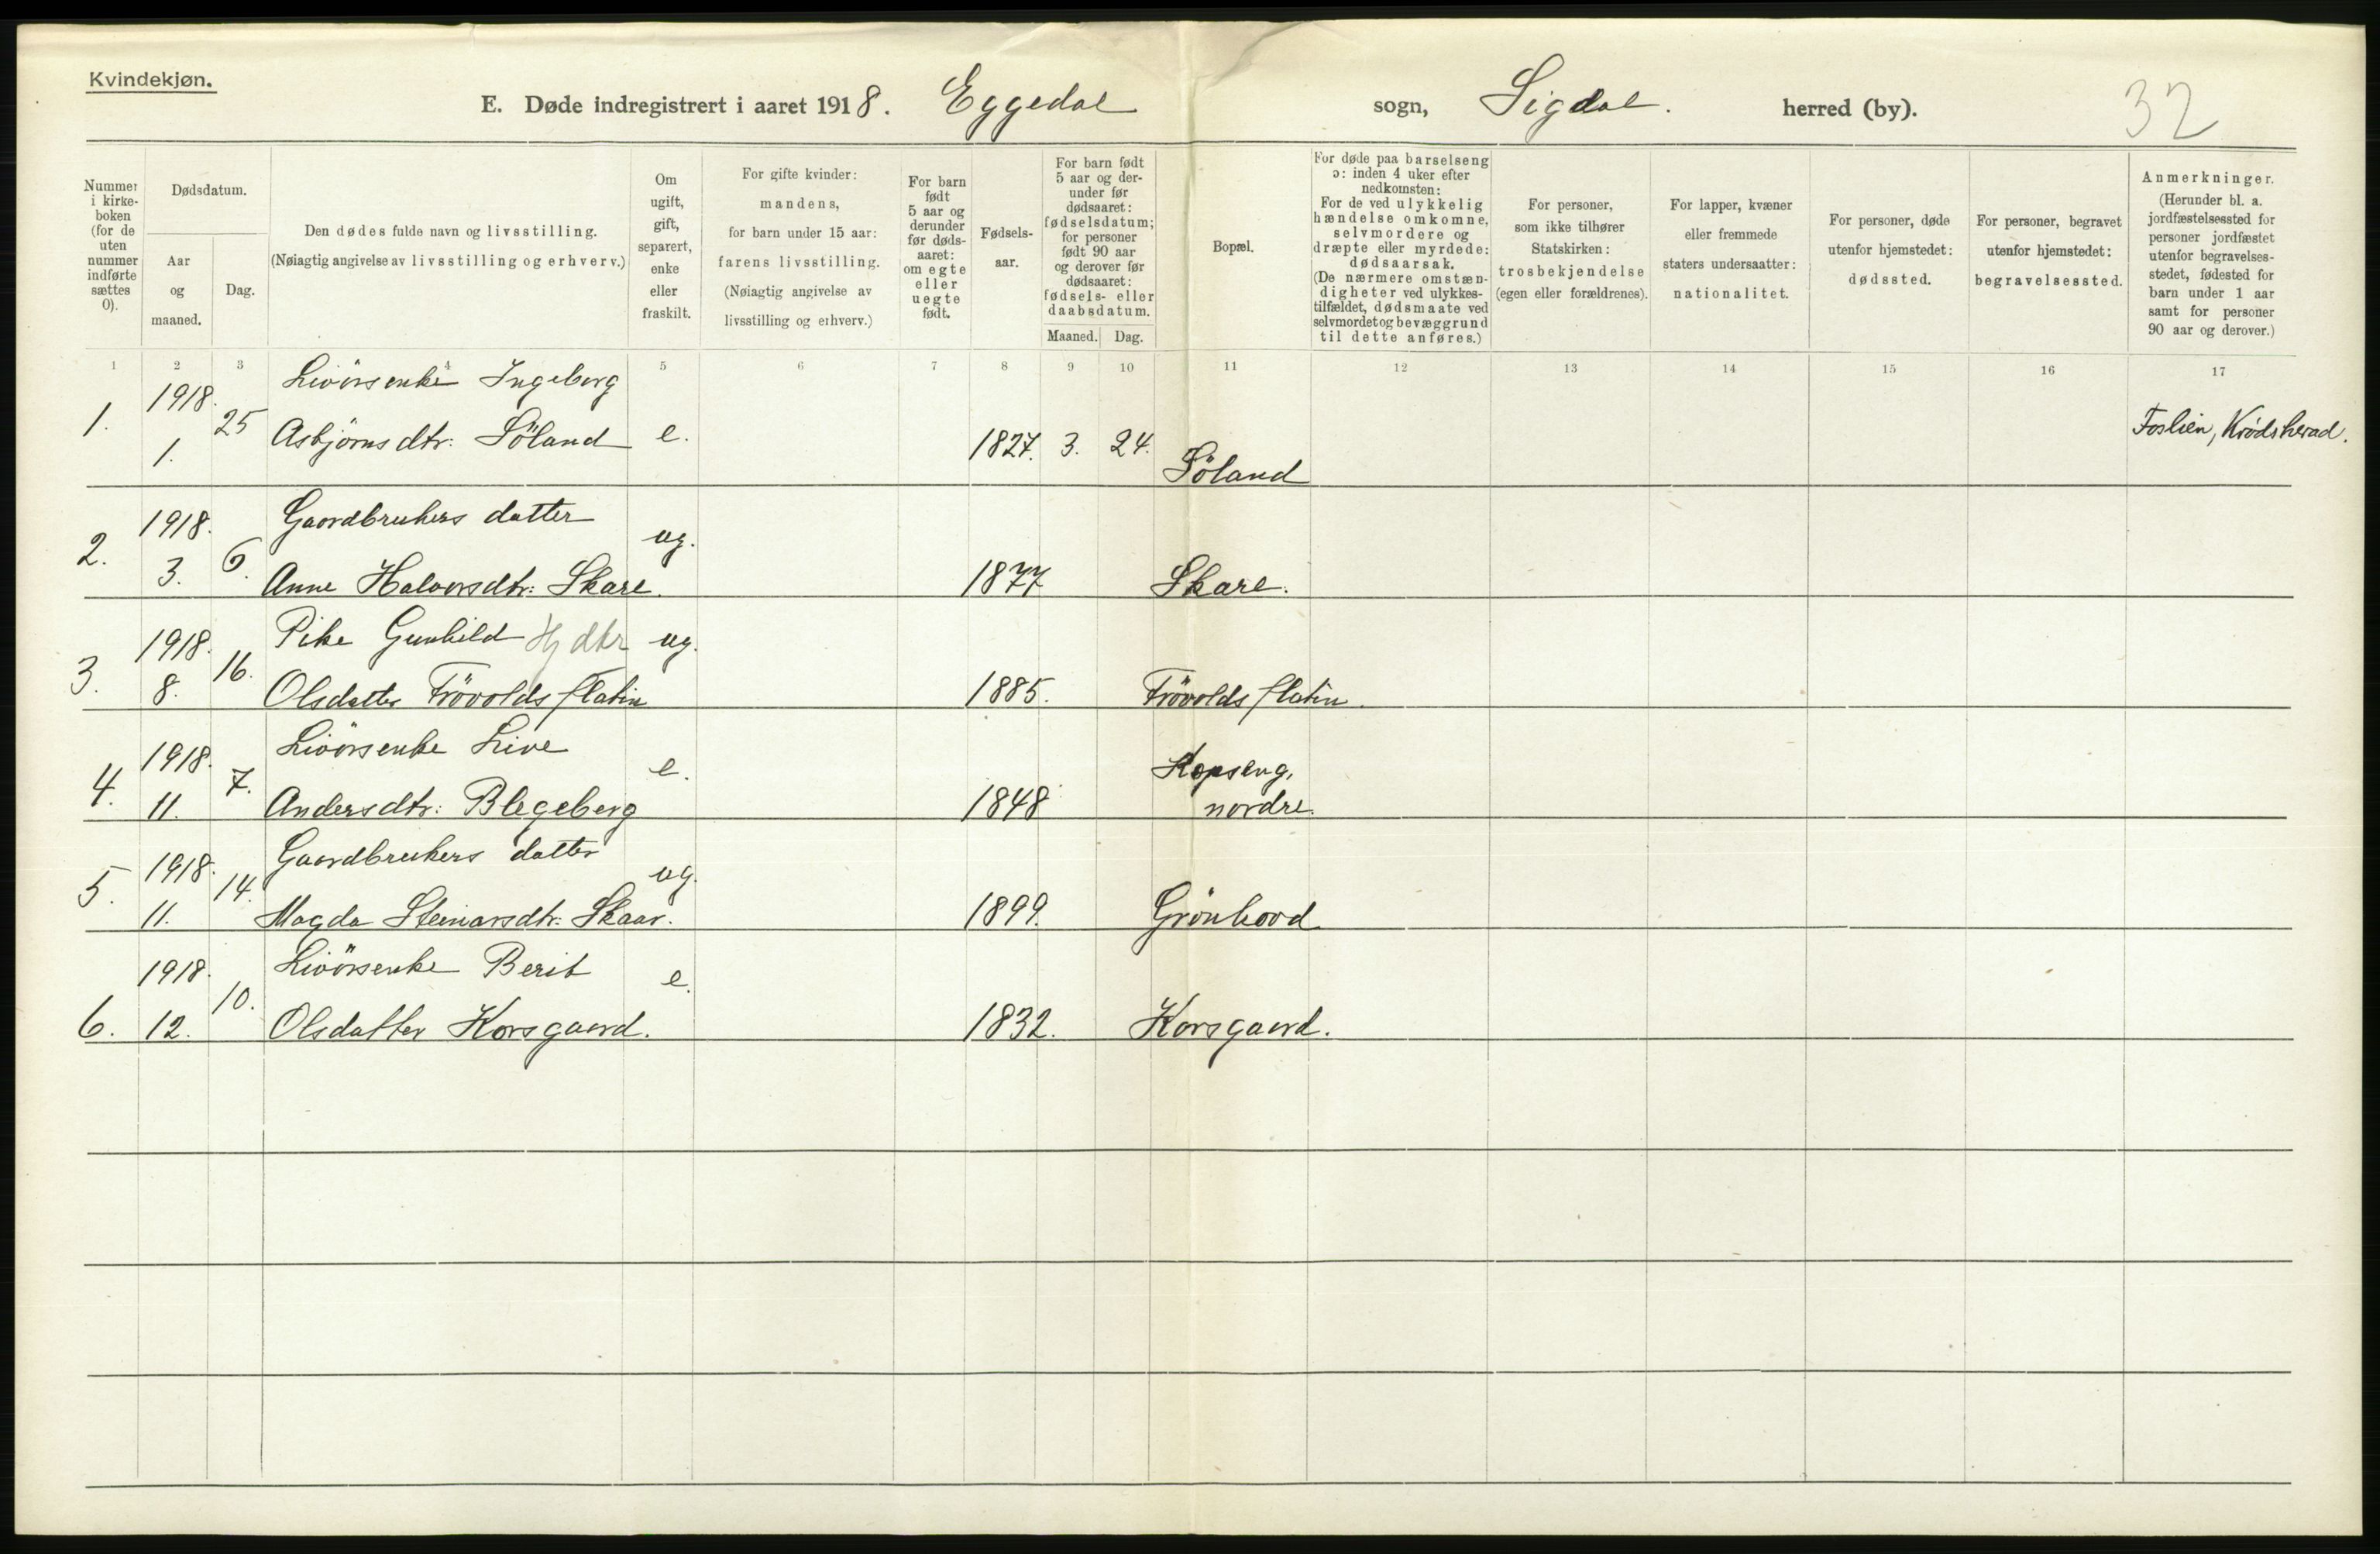 Kvindekjøn.
E. Døde indregistrert i aaret 1918. Eggedal sogn, Sigdal. herred (by). 32
Nummer i kirke-boken (for de uten nummer indførte sættes 0).
Dødsdatum.
Aar og maaned.
Dag.
Den dødes fulde navn og livsstilling.
(Nøiagtig angivelse av livsstilling og erhverv.)
Om ugift, gift, separert, enke eller fraskilt.
For gifte kvinder:
mandens,
for barn under 15 aar:
farens livsstilling.
(Nøiagtig angivelse av
livsstilling og erhverv.)
For barn født 5 aar og derunder før døds-aaret: om egte eller uegte født.
Fødsels-aar.
For barn født
5 aar og der-
under før
dødsaaret:
fødselsdatum;
for personer
født 90 aar
og derover før
dødsaaret:
fødsels- eller
daabsdatum.
Maaned. Dag.
Bopæl.
For døde paa barselseng
ɔ: inden 4 uker efter
nedkomsten:
For de ved ulykkelig
hændelse omkomne,
selvmordere og
dræpte eller myrdede:
dødsaarsak.
(De nærmere omstæn-
digheter ved ulykkes-
tilfældet, dødsmaate ved
selvmordet og bevæggrund
til dette anføres.)
For personer,
som ikke tilhører
Statskirken:
trosbekjendelse
(egen eller forældrenes).
For lapper, kvæner
eller fremmede
staters undersaatter:
nationalitet.
For personer, døde
utenfor hjemstedet:
dødssted.
For personer, begravet
utenfor hjemstedet:
begravelsessted.
Anmerkninger.
(Herunder bl. a.
jordfæstelsessted for
personer jordfæstet
utenfor begravelses-
stedet, fødested for
barn under 1 aar
samt for personer
90 aar og derover.)
1 2 3 4 5 6 7 8 9 10 11 12 13 14 15 16 17
1. 1918. 1. 25 Livörsenke Ingeborg
Asbjörnsdtr: Söland e. 1827. 3. 24. Söland Foslien, Krødsherad.
2. 1918. 3. 6. Gaardbrukers datter
Anne Halvorsdtr: Skare. ug. 1877 Skare.
3. 1918. 8. 16. Pike Gunhild Hj dtr ug.
Olsdatter Frövoldsflatin 1885. Frövoldsflatin.
4. 1918. 11. 7. Livörsenke Live
Andersdtr: Blegeberg e. 1848 Kopseng,
nordre.
5. 1918. 11. 14. Gaardbrukers datter
Magda Steinarsdtr: Skaar. ug. 1899. Grönhovd
6. 1918. 12. 10. Livörsenke Berit
Olsdatter Korsgaard. e. 1832. Korsgaard.